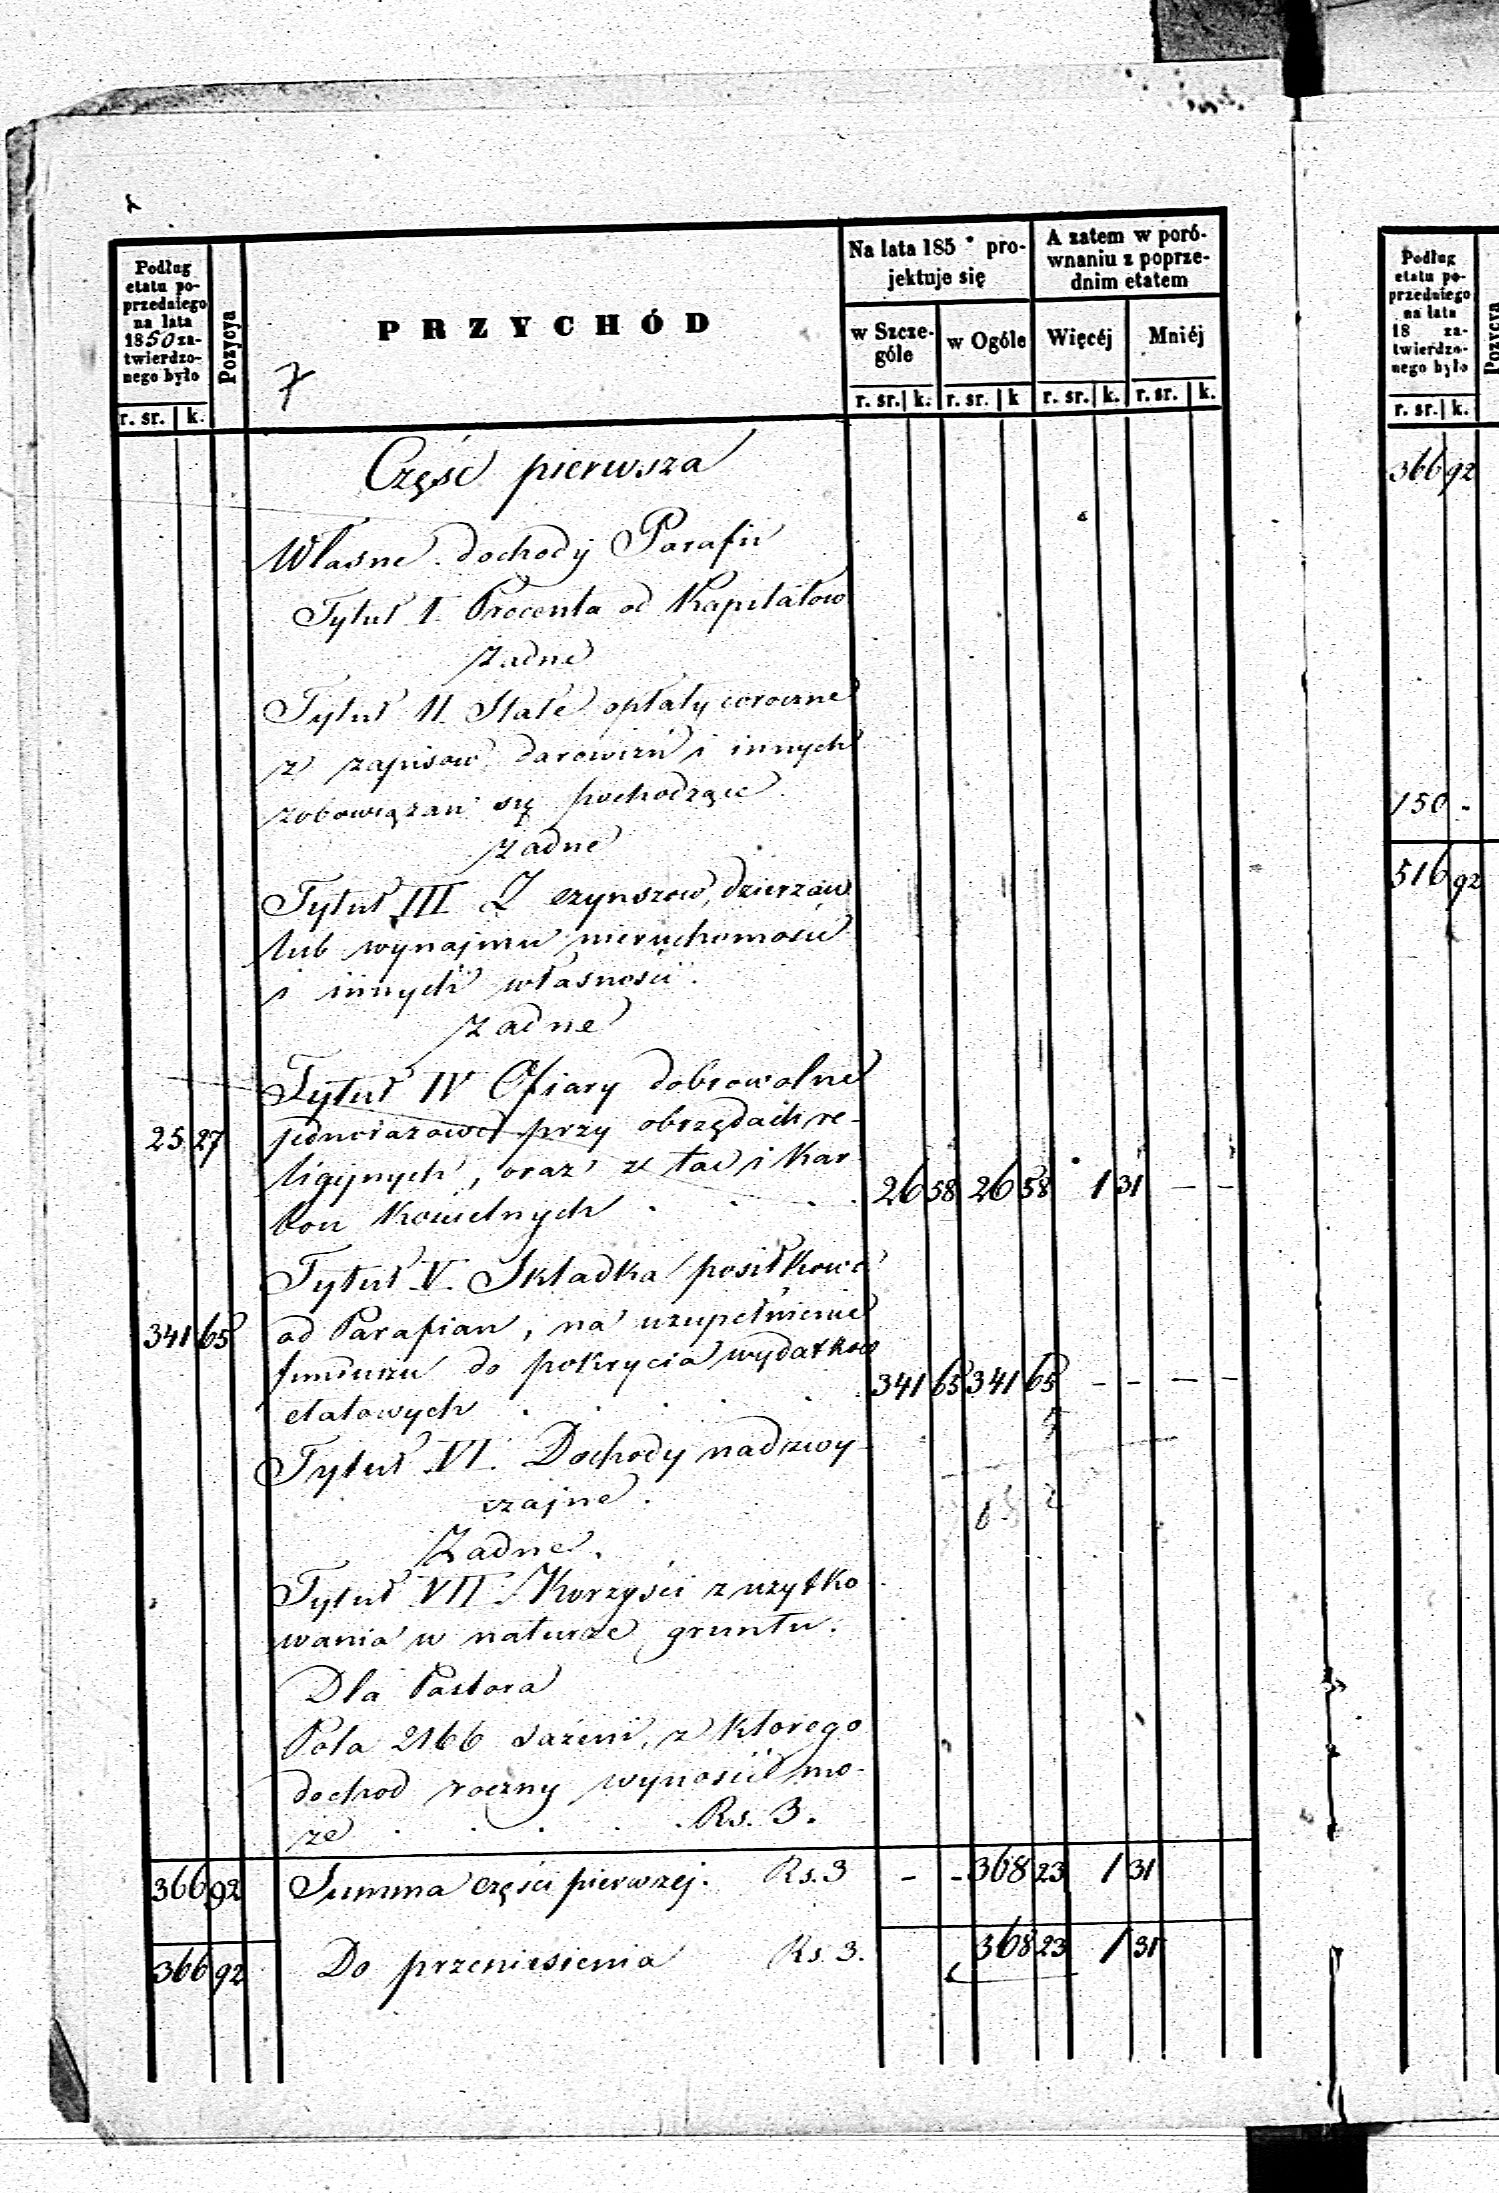 Podług etatu poprzedniego na lata 1850 zatwierdzonego było
r. sr. k.
Pozycya
PRZYCHÓD
7
Na lata 185 projektuje się
w Szczególe
w Ogóle
r. sr. k. r. sr. k
A zatem w porównaniu z poprzednim etatem
Więcéj
Mniéj
r. sr. k. r. sr. k.
Część pierwsza
Własne dochody Parafii
Tytuł I. Procenta od Kapitałow
Zadne
Tytuł II. Stałe opłaty coroczne
z zapisow, darowizn i innych
zobowiązań się pochodzące
żadne
Tytuł III Z czynszow, dzierzaw
lub wynajmu nieruchomości
i innych własności.
żadne
Tytuł IV Ofiary dobrowolne
25 27 jednorazowe przy obrzędach re-
ligijnych, oraz z tac i Kar-
bon Kościelnych . . . 26 58 26 58 1 31 - -
Tytuł V. Składka posiłkowa
341 65 od Parafian, na uzupełnienie
funduszu do pokrycia wydatkow
etatowych . . . . 341 65 341 65 - - - -
Tytuł VI. Dochody nadzwy-
czajne.
Żadne.
Tytuł VII. Korzyści z uzytko-
wania w naturze gruntu.
Dla Pastora
Pola 2166 sażeni, z ktorego
dochod roczny wynosić mo-
ze . . . . . Rs. 3.
366 92 Summa części pierwszej. Rs. 3 - - 368 23 1 31
366 92 Do przeniesienia Rs. 3. 368 23 1 31
Podług etatu poprzedniego na lata 18 zatwierdzonego było
r. sr. k.
Pozycya
366 92
150 -
516 92